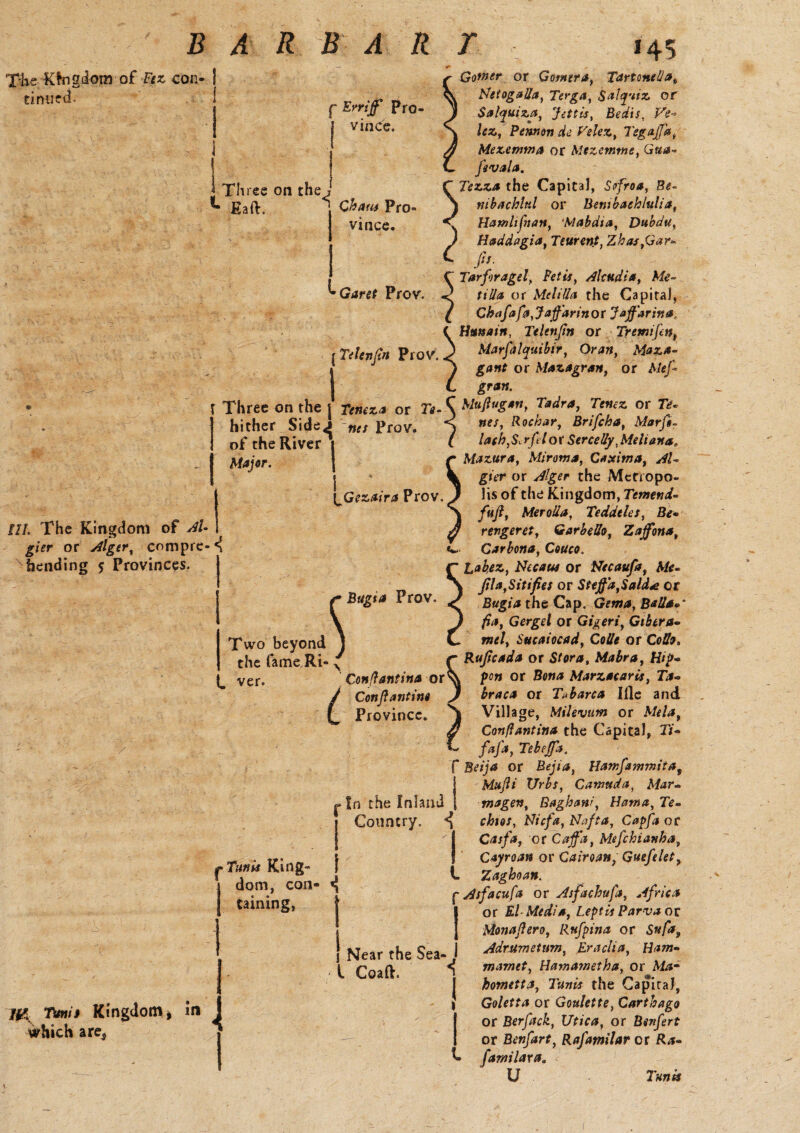 BARBARY
145
The Kingdom of Fez continued.
Three on the East.
Erriff Province.
Gomer or Gomera, Tartonella,
Netogalla, Terga, Salquiz or
Salquiza, Jettis, Bedis, Ve-
lez, Pennon de Velez, Tegassa,
Mezemma or Mezemme, Gua-
sevala.
Chaus Province.
Tezza the Capital, Sofroa, Be-
nibachlul or Benibachlulia,
Hamlisnan, Mabdia, Dubdu,
Haddagia, Teurent, Zhas, Gar-
sis.
Garet Prov.
Tarforagel, Fetis, Alcudia, Me-
tilla or Melilla the Capital,
Chasasa, Jaffarin or Jaffarina.
III. The Kingdom of Al-
gier or Alger, compre-
hending 5 Provinces.
Three on the
hither Side
of the River
Major.
Telensin Prov.
Hunain, Telensin or Tremisen,
Marsalquibir, Oran, Maza-
gant or Mazagran, or Mes-
gran.
Teneza or Te-
nes Prov.
Mustugan, Tadra, Tenez or Te-
nes, Rochar, Brischa, Marso-
lach, Sersel or Sercelly, Meliana.
Gezaira Prov.
Mazura, Miroma, Caxima, Al-
gier or Alger the Metropo-
lis of the Kingdom, Temend-
fust, Merolla, Teddeles, Be-
rengeret, Garbello, Zaffona,
Carbona, Couco.
Two beyond
the same Ri-
ver.
Bugia Prov.
Labez, Necaus or Necausa, Me-
sila, Sitifies or Steffa, Saldæ or
Bugia the Cap. Gema, Balla-
sia, Gergel or Gigeri, Gibera-
mel, Sucaiocad, Colle or Collo.
Constantina or
Constantine
Province.
Ruficada or Stora, Mabra, Hip-
pon or Bona Marzacaris, Ta-
braca or Tabarca Isle and
Village, Milevum or Mela,
Constantina the Capital, Ti-
fasa, Tebessa.
IV. Tunis Kingdom, in
which are,
Tunis King-
dom, con-
taining,
In the Inland
Country.
Beija or Bejia, Hamsammita,
Musti Urbs, Camuda, Mar-
magen, Baghani, Hama, Te-
chios, Nicsa, Nafta, Capsa or
Casfa, or Caffa, Meschianha,
Cayroan or Cairoan, Gueselet,
Zaghoan.
Near the Sea-
Coast.
Asfacusa or Asfachusa, Africa
or El-Media, Leptis Parva or
Monastero, Ruspina or Susa,
Adrumetum, Eraclia, Ham-
mamet, Hamametha, or Ma-
hometta, Tunis the Capital,
Goletta or Goulette, Carthago
or Bersack, Utica, or Bensert
or Bensart, Rasamilar or Ra-
samilara.
U
Tunis